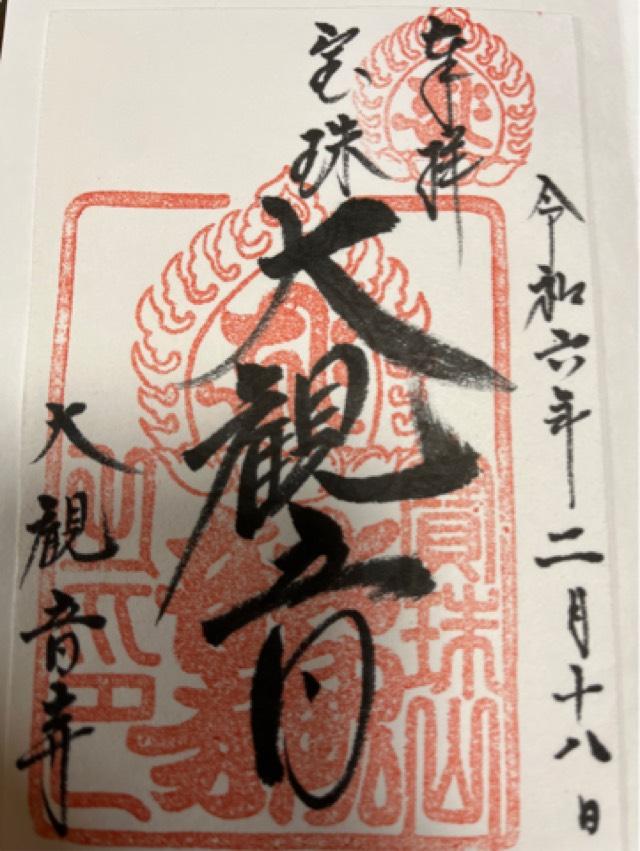 令和六年二月十八日
奉拝
宝珠
大觀音
大観音寺
寳珠山